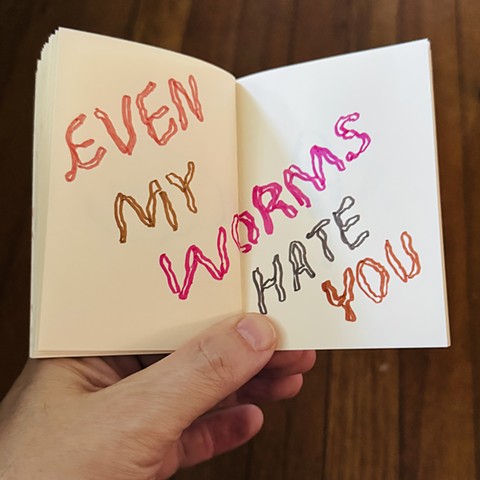 EVEN
MY
WORMS
HATE
YOU